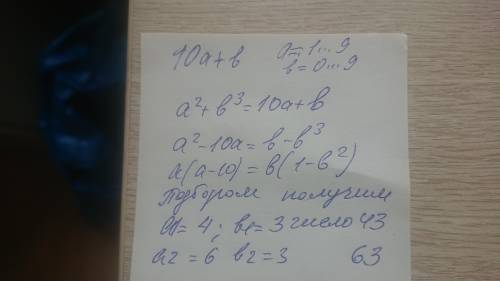 10a+b a=1...9
b=0...9
a²+b³=10a+b
a²-10a=b-b³
a(a-10)=b(1-b²)
Подбором получим
a₁=4; b₁=3 число 43
a2=6 b2=3 63